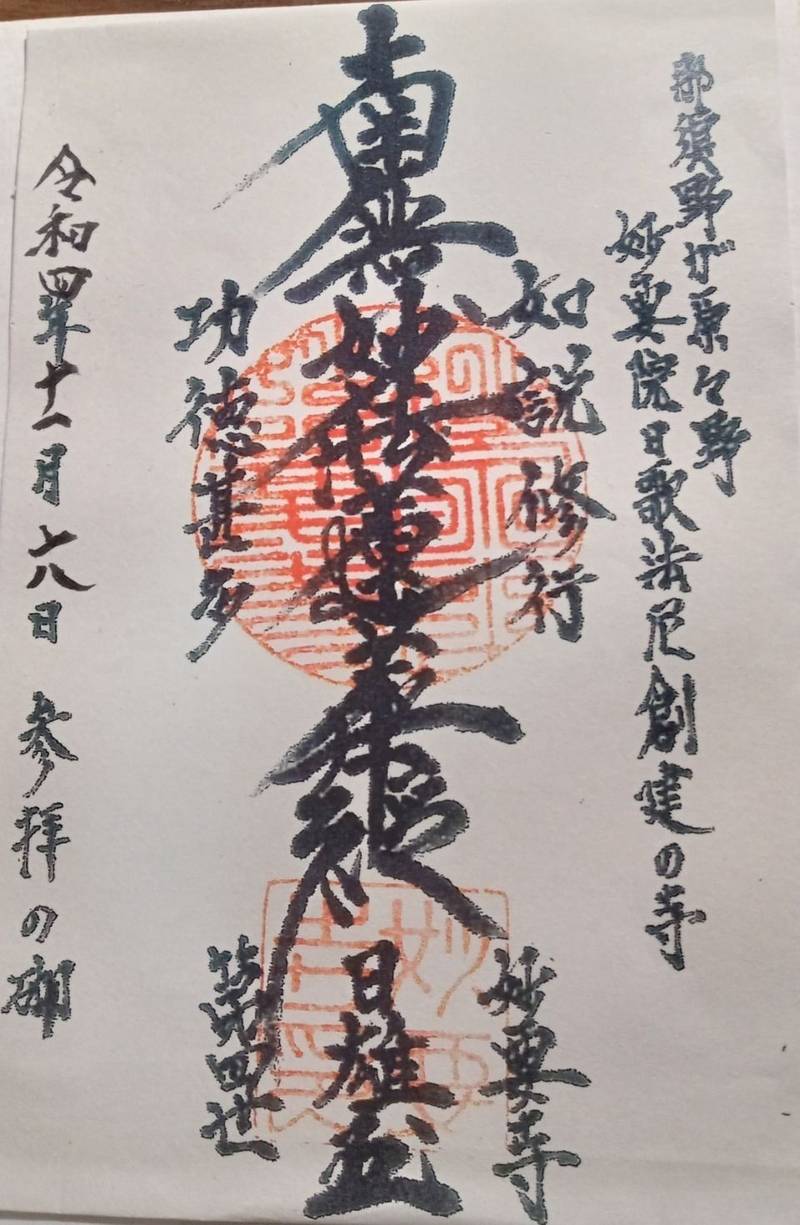 那須野が原々野
妙要院日歌法尼創建の寺
如説修行
南無妙法蓮華経
功徳甚多
妙要寺
日雄
第四世
令和四年十一月十八日 参拝の砌